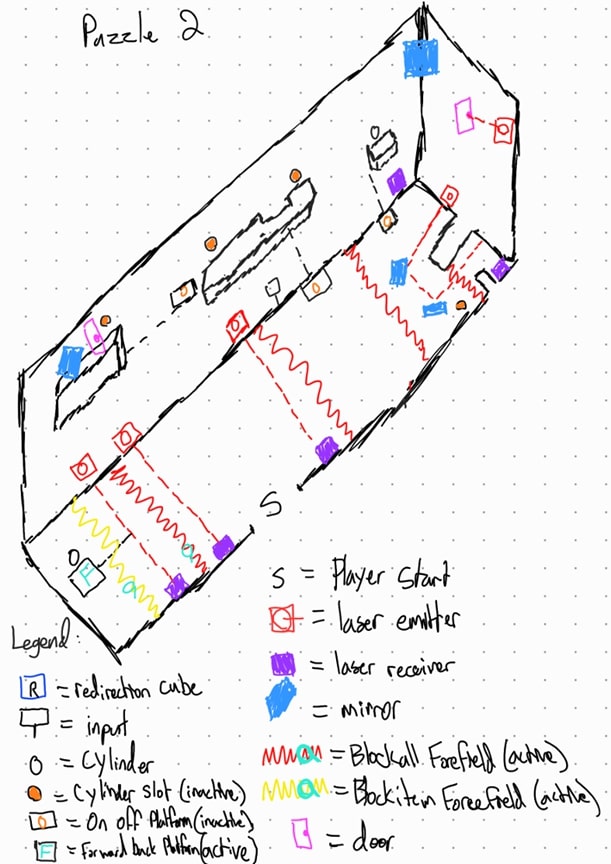 Puzzle 2
F
S
Legend:
R = redirection cube
= input
= Cylinder
= Cylinder slot (inactive)
= On off Platform (inactive)
F = Forward back Platform (active)
S = Player Start
= laser emitter
= laser receiver
= mirror
= Blockall Forefield (active)
= Blockitem Forcefield (active)
= door